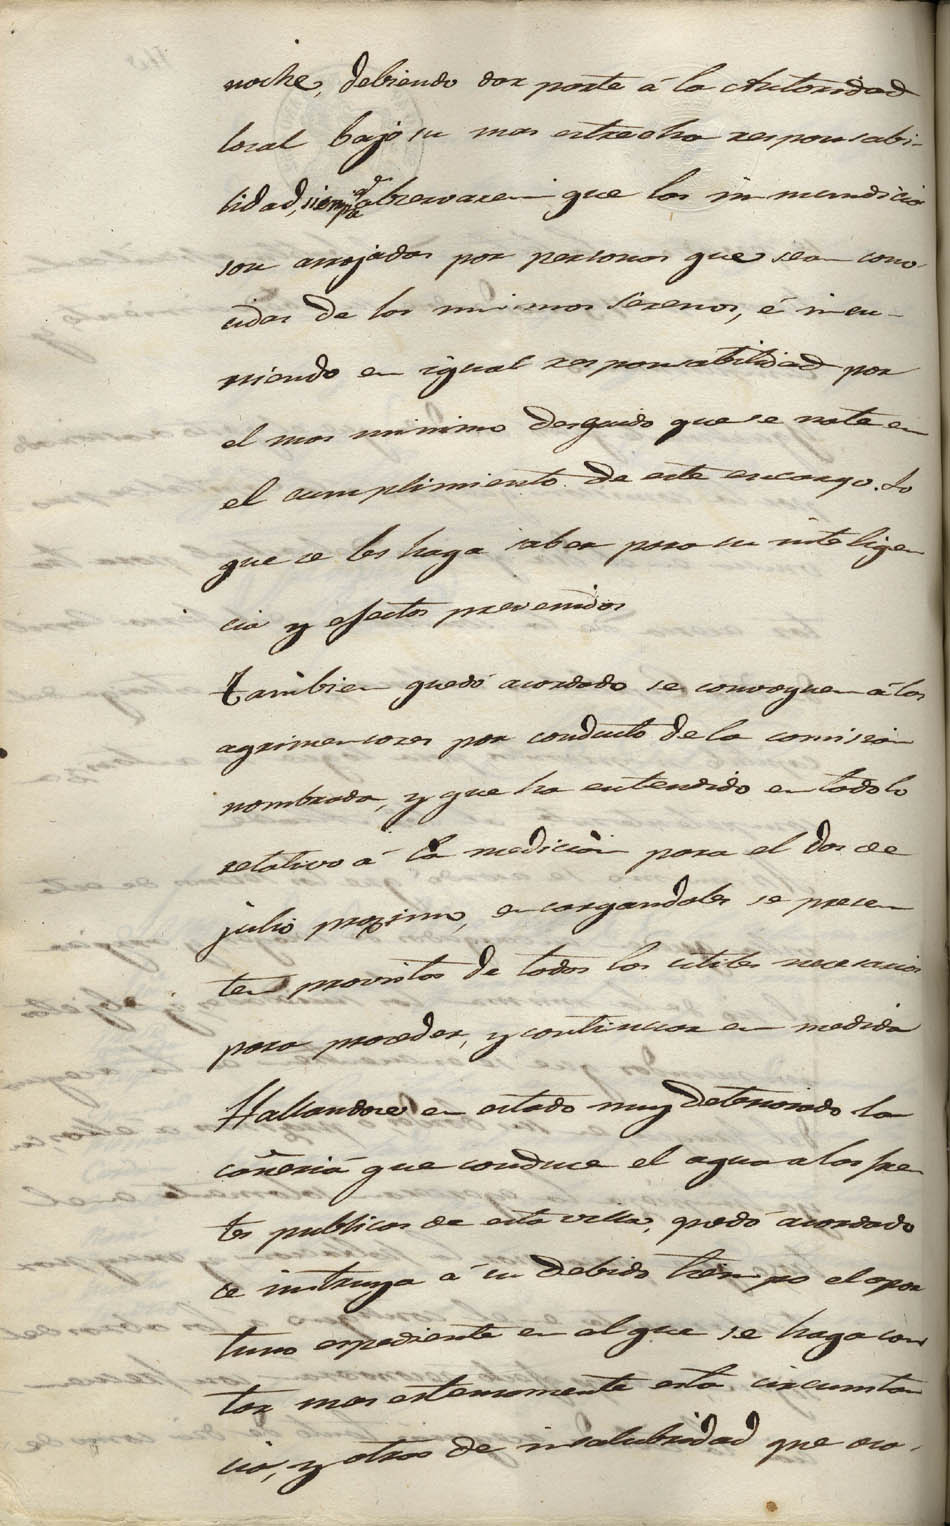 noche, debiendo dar parte á la Autoridad
local bajo su mas estrecha responsabi-
lidad, siempre q.e observasen que las inmundicias
son arrojadas por personas que sean cono-
cidas de los mismos Serenos, é incu-
rriendo en igual responsabilidad por
el mas minimo descuido que se note en
el cumplimiento de este encargo. Lo
que se les haga saber para su inteligen
cia y efectos prevenidos
Tambien quedó acordado se convoquen á los
agrimensores por conducto de la comision
nombrada, y que ha entendido en todo lo
relativo á la medicion para el dos de
julio proximo, encargandoles se presen
ten provistos de todos los utiles necesarios
para proceder, y continuar en medida
Hallandose en estado muy deteriorado la
cañeria que conduce el agua a las fuen
tes publicas de esta villa, quedó acordado
se instruya á su debido tiempo el opor
tuno espediente en el que se haga cons
tar mas estensamente esta circunstan
cia, y otras de insalubridad que oca-